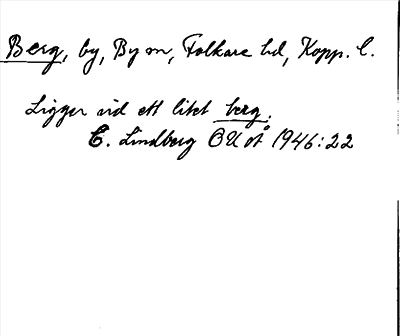 Berg, by, By sn, Folkare hd, Kopp. l.
Ligger vid ett litet berg.
E. Lindberg OUoÅ 1946:22